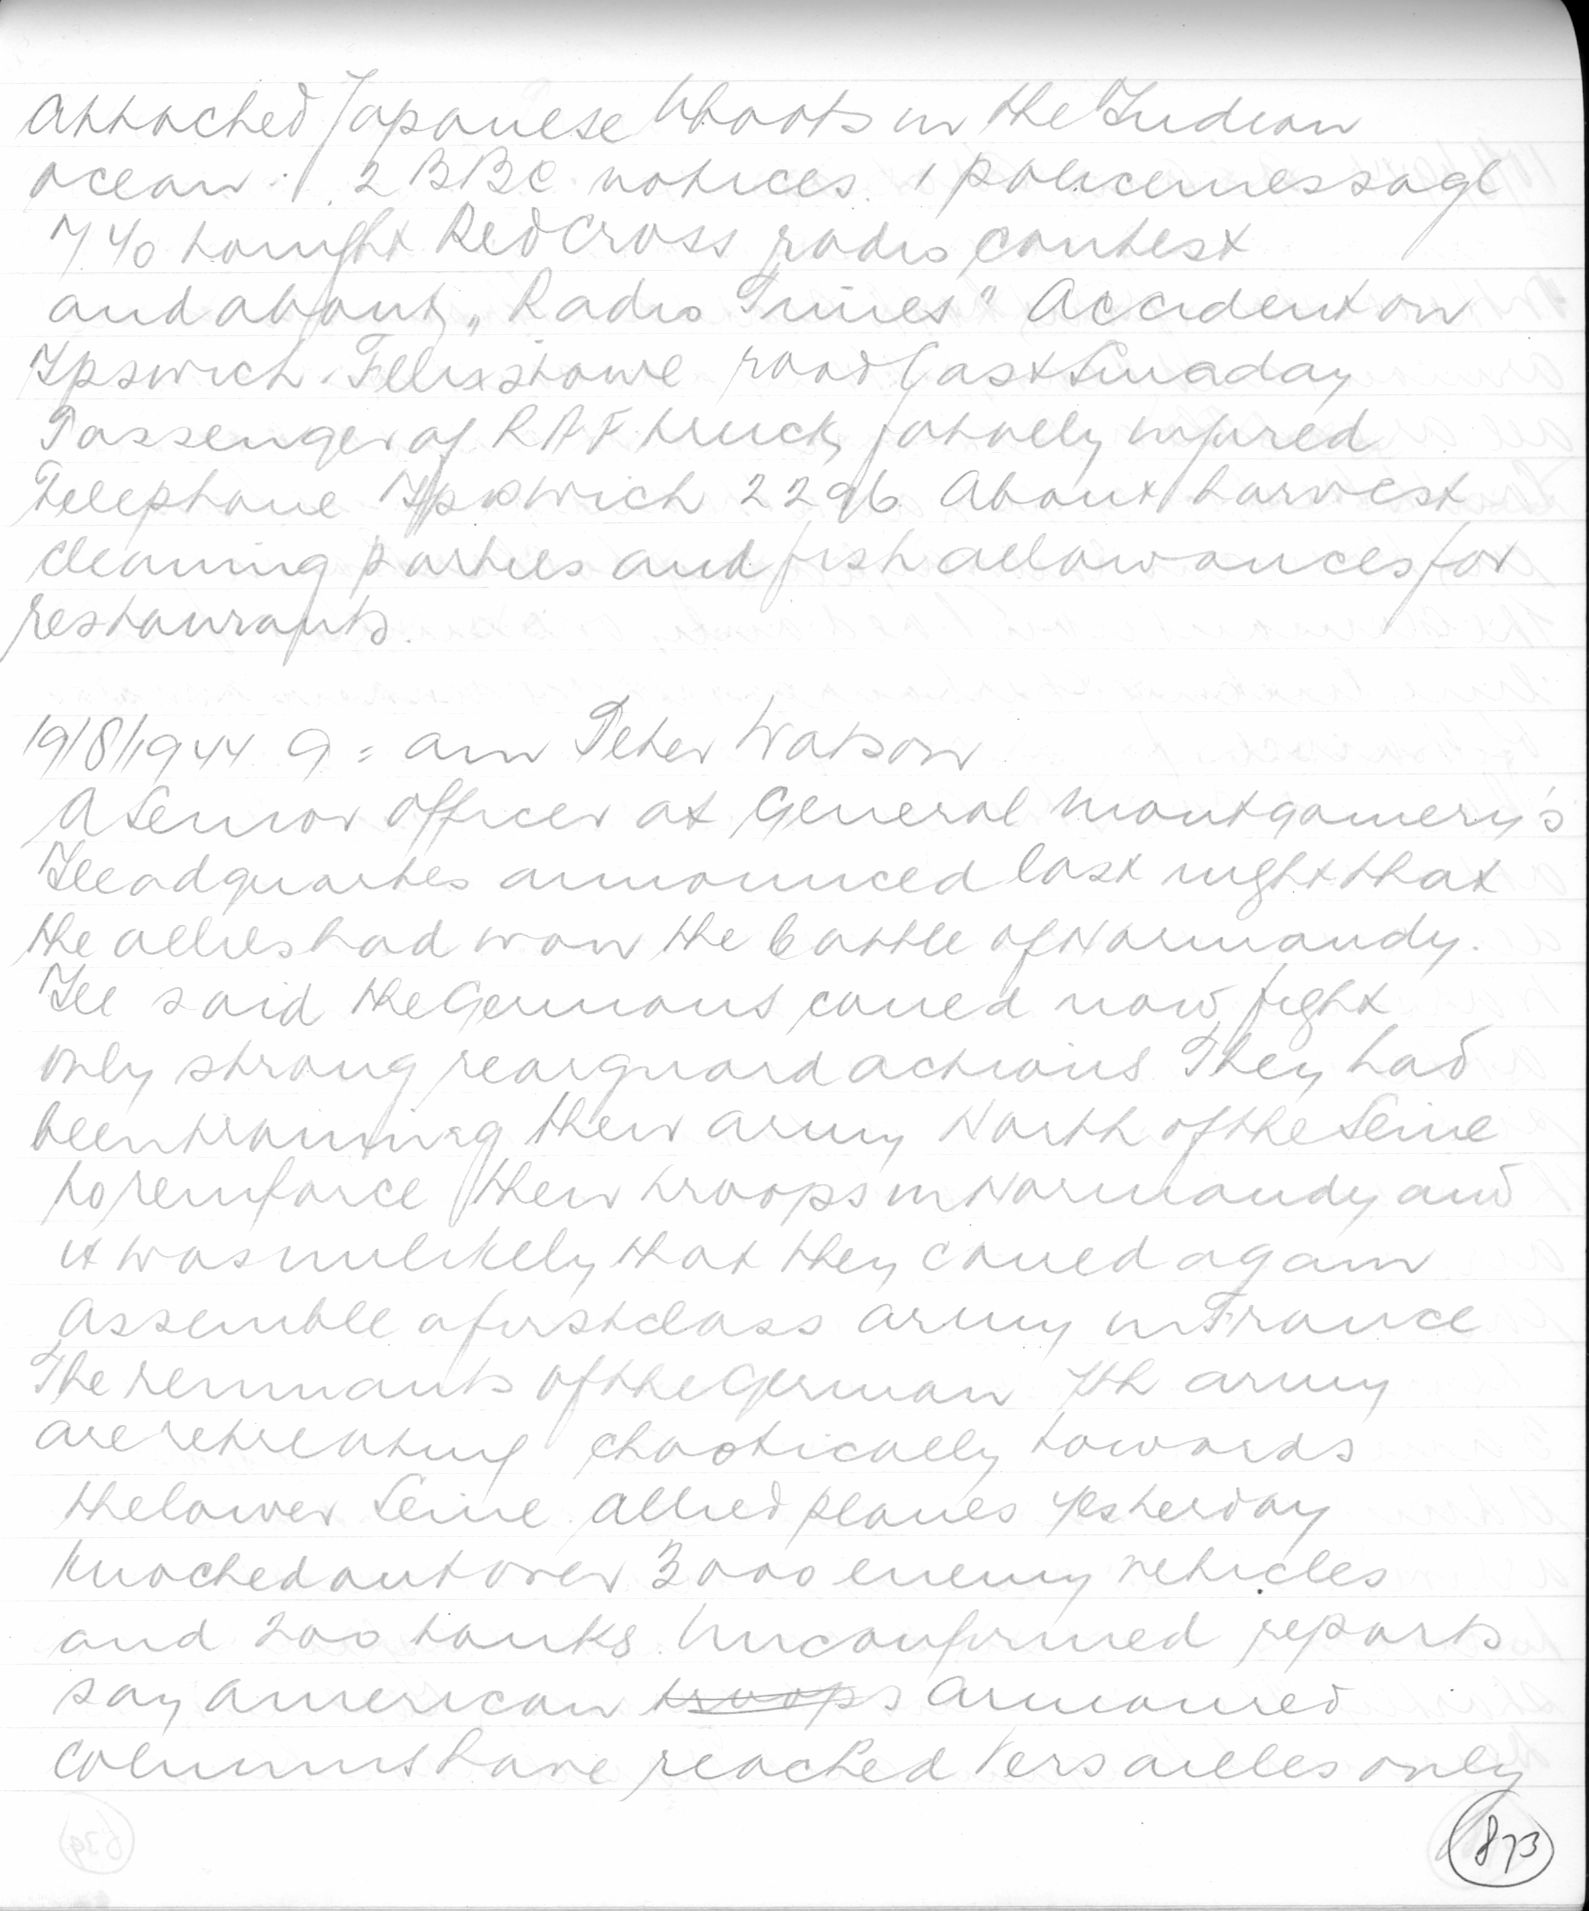 attached Japanese Uboats in the Indian
ocean. 2 BBC notices. 1 policemessage
740 tonight Red Cross radio contest
and about „Radio Times" Accident on
Ipswich-Felixstowe road last Sunday
Passenger of RAF truck fatally injured
Telephone Ipswich 2296 About harvest
cleaning parties and fish allowances for
restaurants.
19/8/1944 9 = am Peter Watson
A Senior officer at General Montgomery's
Headquartes announced last night that
the allies had won the battle of Normandy.
He said the Germans could now fight
only strong rearguard actions They had
been training their army North of the Seine
to reinforce their troops in Normandy and
it was unlikely that they could again
assemble a firstclass army in France
The remnants of the German 7th army
are retreating chaotically towards
the lower Seine. Allied planes yesterday
knocked out over 3000 enemy vehicles
and 200 tanks. Unconfirmed reports
say American troops armoured
columns have reached Versailles only
873